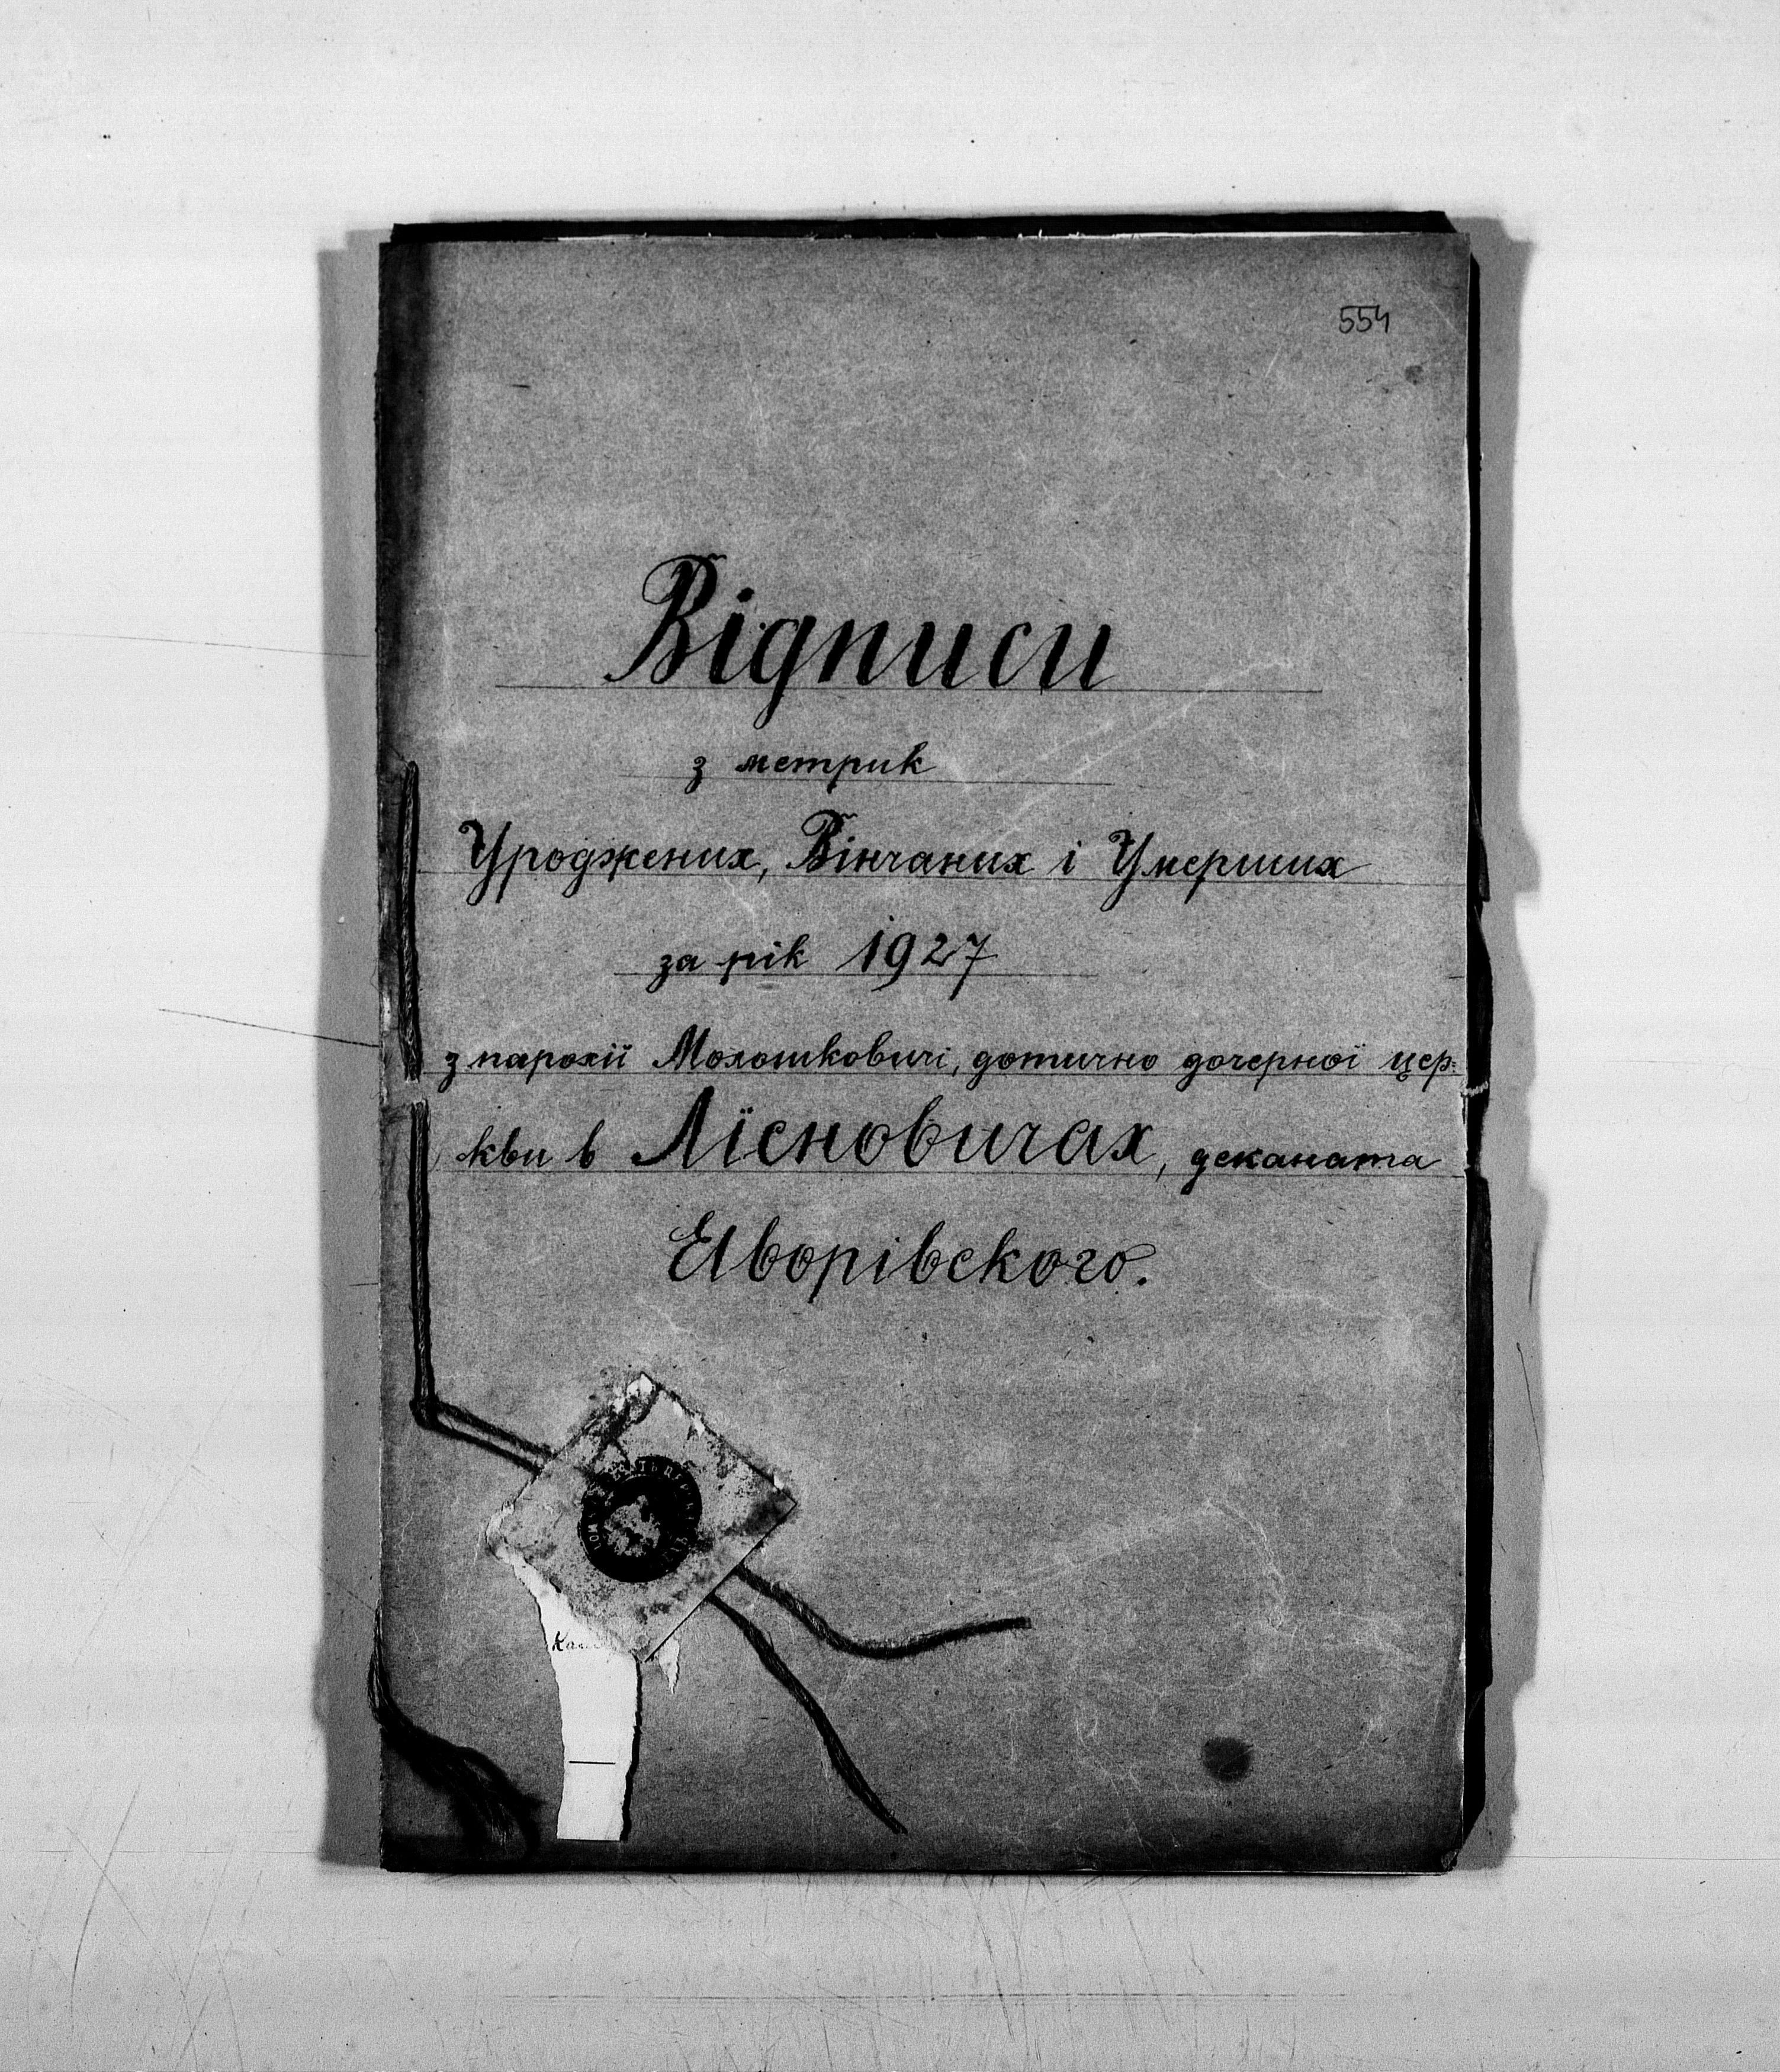 554
Відписи
з метрик
Уроджених, Вінчаних і Умерших
за рік 1927
з парохії Молошковичі, дотично дочерної цер-
кви в Лїсновичах, деканата
Яворівского.